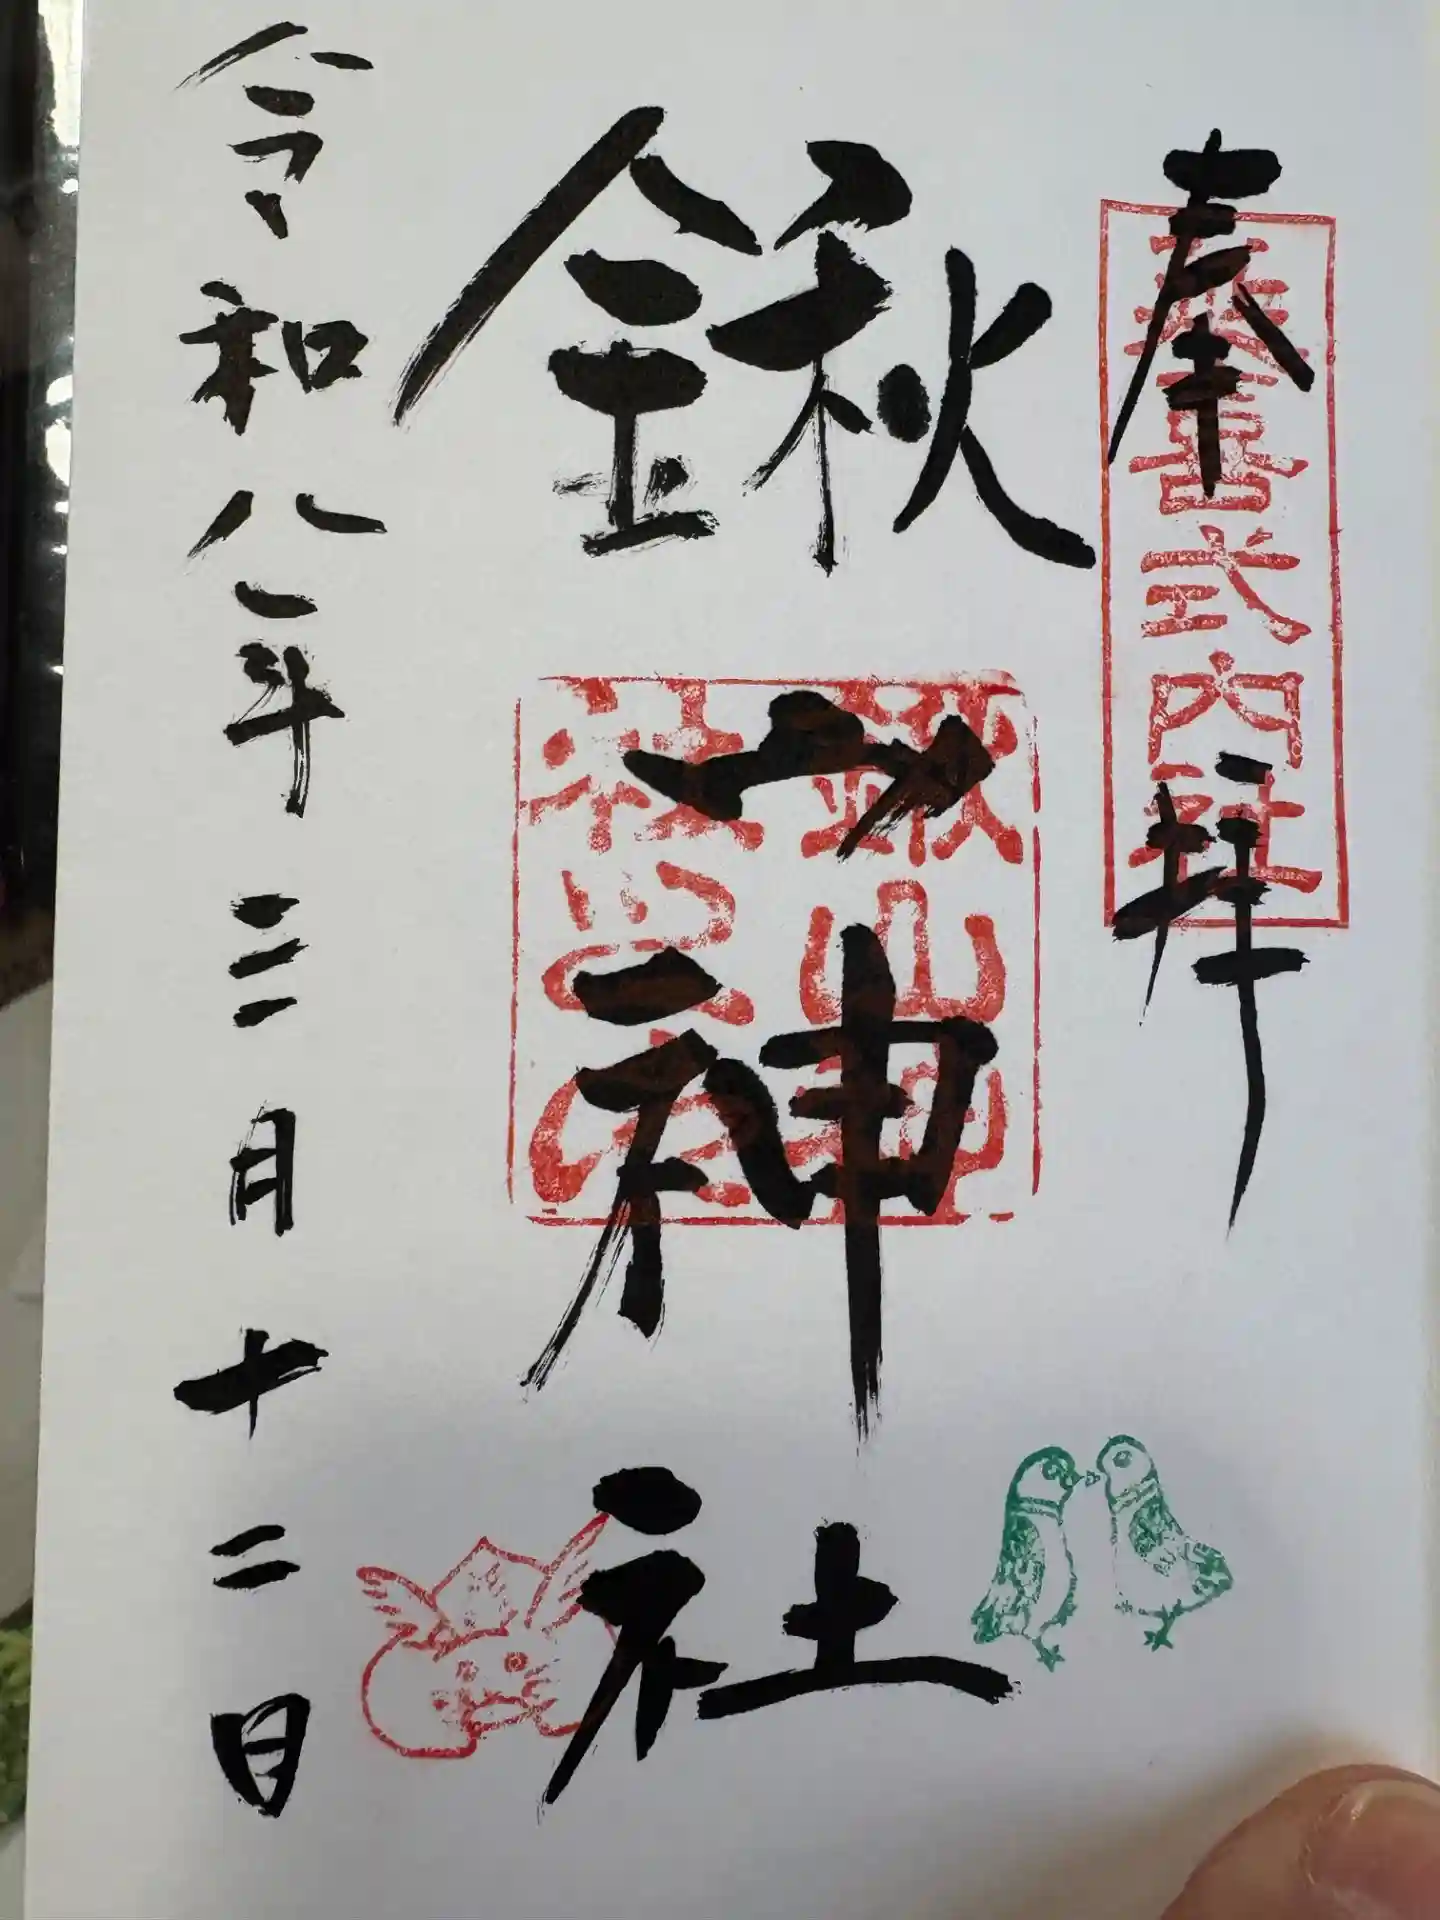 奉拝
延喜式内社
鍬山神社
鍬山神
社之印
令和八年三月十二日